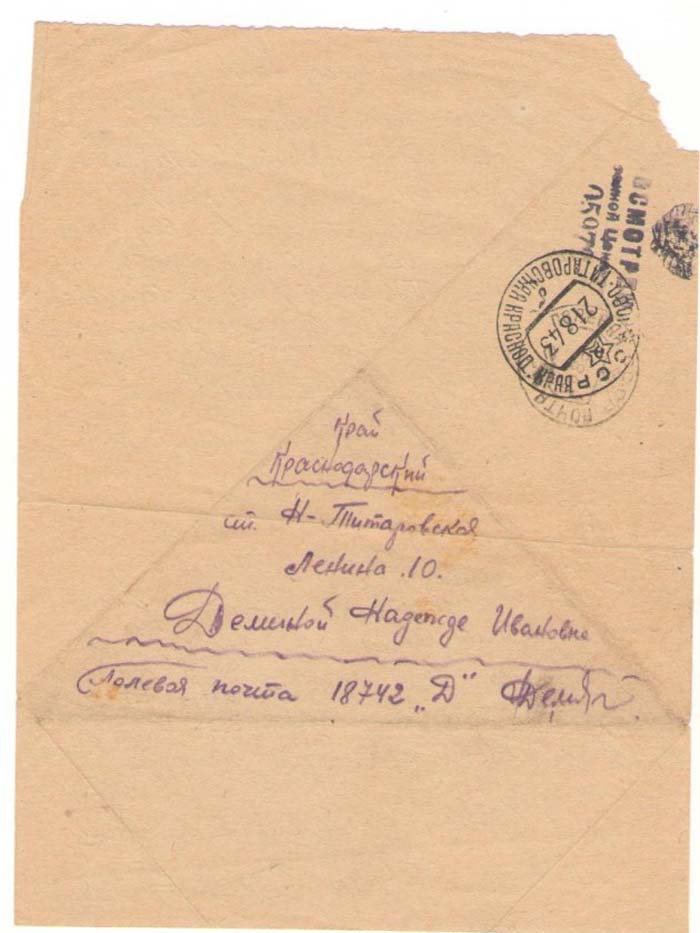 край
Краснодарский
ст. Н-Титаровская
Ленина .10.
Деминой Надежде Ивановне
Полевая почта 18742 „Д"
ПРОСМОТРЕНО
Военной Цензурой
0507
НОВО-ТИТАРОВСКАЯ КРАСНОДАР. КРАЯ
21 8 43
СССР
ПОЧТА